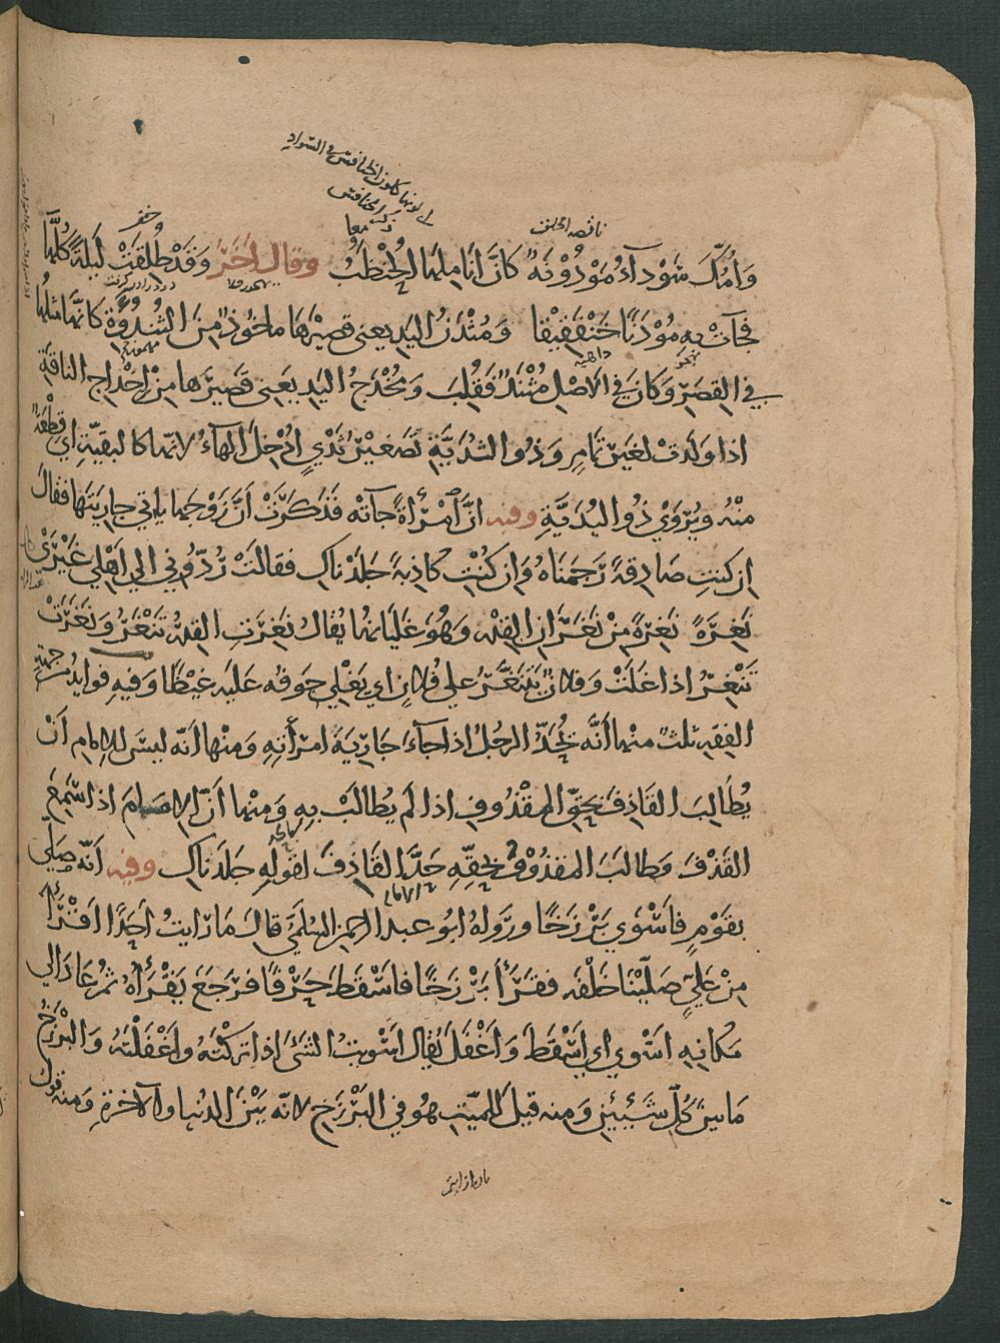 لانها كلون الخنافس في السواد
ذكر الخنافس
معا
ناقصه الخلق
وَاُمُّكَ سَوْدآءُ مَوْدُوْنَةٌ كَانَّ اَنَامِلَهَا الحُنْظَبُ وقال اخَرُ وَقَدْ طُلِقَتْ لَيلَةً كُلَّهَا
فجآتْ بِهِ مُوْدَنًا خَنْفَقِيْقا وَمُثْدَنُ اليَدِ يعنى قصيْرهَا ماخُوذٌ مِنَ الثُّنْدُوَةِ كانَّهَا مثلها
داهية
في القِصَرِ وَكَانَ فِي الاَصْلِ مُثْنَدٌ فَقُلِبَ وَمُخْدَجُ اليَدِ يَعنِى قَصِيرَهَا مِنْ اِخْدَاجِ الناقَةِ
اذا وَلدَتْ لغَيرِ تَمَامٍ وَذُو الثُدَيَّةِ تَصْغيْرُ ثَدْيٍ اُدْخِلَ الهَآءُ لانّهَا كالبقيّةِ اي قِطْعَةٌ
مِنْهُ ويُرْوَيْ ذُو اليُدَيَّةِ وفيه انَّ اَمْرَأةً جآتْه فَذكَرَتْ اَنَّ زَوْجها ياتي جاريتَها فقالَ
اِن كنتِ صَادِقةً رَجَمنَاهُ وَان كُنْتِ كاذِبةً جلَدْناكِ فقالتْ رُدُّوْنِي الي اَهْلي غَيْرَى
نَغِرَةً نَغِرَةً مِنْ نَغَرَانِ القِدْرِ وَهُوَ غَلَيَانها يُقالُ نَغِرَتِ القِدْرُ تَنْغَرُ وَنَغَرَتْ
تَنْغِرُ اذا غَلَتْ وَفلانٌ يَتَنَغَّرُ علي فُلانٍ اي يَغْلِي جَوفُه عَلَيه غَيْظًا وَفِيهِ فوايدُ مِنْ جهةِ
الفِقهِ ثلثٌ منها اَنَّه يُحَدُّ الرجُلُ اذا جآءَ جَارِيَةَ امرَأتِهِ وَمنْها اَنّه ليسَ للامام اَنْ
يُطالِبَ القَاذِفَ بحَقِّ المقْذُوفِ اذا لَم يُطالَبْ بِهِ وَمِنْها اَنَّ الامَامَ اذا سَمِعَ
القَذْفَ وَطالَبَ المقذُوْفُ بحقِّهِ حَدَّ القَاذِفَ لقولِهِ جلَدناكِ وفيه اَنّه صَلّي
الامام
بقَوْمٍ فاَسْوَي بَرْزَخًا ورَوَاهُ ابُو عبد الرحمن السُلَمِيّ قالَ مَا رَايتُ اَحَدًا اَقْرَأ
مِنْ عَلِيٍّ صَلّيْنَا خلْفَه فقَرَأ بَرْزَخًا فاسْقَطَ حَرْفًا فرَجَعَ يَقْرَأهُ ثمَّ عَادَ الي
مكانِهِ اَسْوي اي اَسْقَطَ وَاغْفَلَ يُقالُ اَسْوَيتُ الشئَ اذا تركْتَه وَاغْفَلْتَه وَالبرْزَخُ
مَا بينَ كُلّ شَيئينِ وَمنه قيلَ للميّتِ هُو في البَرْزَخِ لانّه بَيْنَ الدنيا والآخرةِ وَمنه قولُ